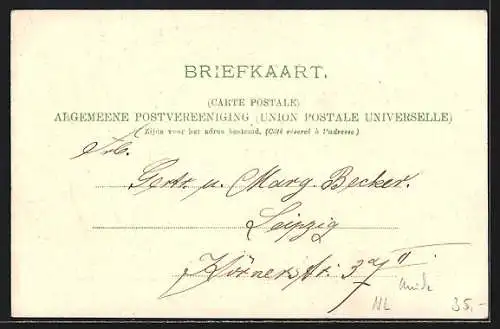 BRIEFKAART.
(CARTE POSTALE)
ALGEMEENE POSTVEREENIGING (UNION POSTALE UNIVERSELLE)
Zijde voor het adres bestemd. (Côté réservé à l'adresse)
Frl.
Gertr. u. Marg. Becker.
Leipzig
Körnerstr. 37 II
NL
35,-